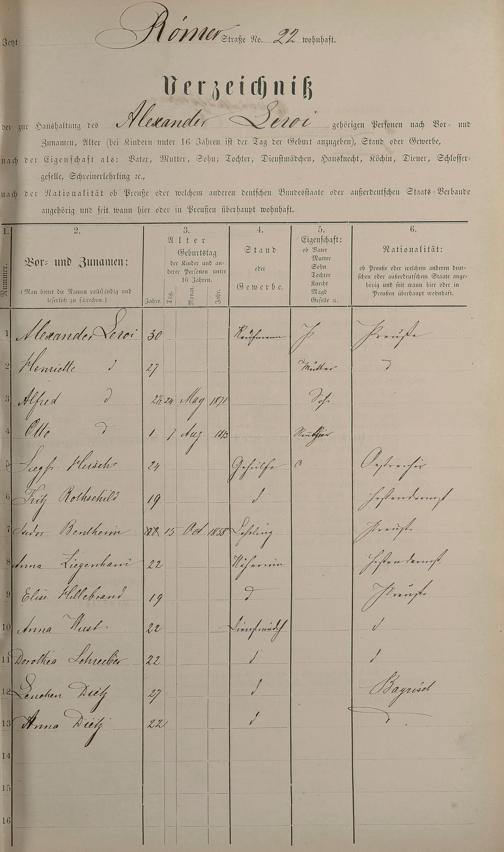 Jetzt Römer Straße No. 22 wohnhaft.
Verzeichniß
der zur Haushaltung des Alexander Leroi gehörigen Personen nach Vor- und
Zunamen, Alter (bei Kindern unter 16 Jahren ist der Tag der Geburt anzugeben), Stand oder Gewerbe,
nach der Eigenschaft als: Vater, Mutter, Sohn, Tochter, Dienstmädchen, Hausknecht, Köchin, Diener, Schlosser-
geselle, Schreinerlehrling ꝛc.,
nach der Nationalität ob Preuße oder welchem anderen deutschen Bundesstaate oder außerdeutschen Staats-Verbande
angehörig und seit wann hier oder in Preußen überhaupt wohnhaft.
1. 2. 3. 4. 5. 6.
Nummer.
Vor- und Zunamen:
(Man bittet die Namen vollständig und
leserlich zu schreiben.)
Alter
Geburtstag
der Kinder und an-
derer Personen unter
16 Jahren.
Jahre. Tag. Monat. Jahr.
Stand
oder
Gewerbe.
Eigenschaft:
ob Vater
Mutter
Sohn
Tochter
Knecht
Magd
Geselle u.
Nationalität:
ob Preuße oder welchem anderen deut-
schen oder außerdeutschen Staate ange-
hörig und seit wann hier oder in
Preußen überhaupt wohnhaft.
1 Alexander Leroi 30 Kaufmann Preuße
2 Henriette d 27 Mutter d
3 Alfred d 24 May 1871 Sohn
4 Otto d 1 7 Aug
5 Hirsch 24 Gehülfe Oestreicher
6 Fritz Rothschild 19 d
7 Isidor Bentheim 15 Oct 1858 Lehrling Preuße
8 Anna Ziegenhain 22 Näherin
9 Elise Hillebrand 19 d Preuße
10 Anna Wust 22 Dienstmädch d
11 Dorothea Schreiber 22 d d
12 Lenchen Dietz 27 d Bayrisch
13 Anna Dietz 22 d d
14
15
16